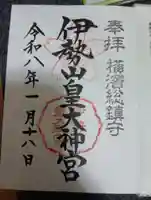 奉拝 横濱総鎮守
伊勢山皇大神宮
令和八年一月十八日